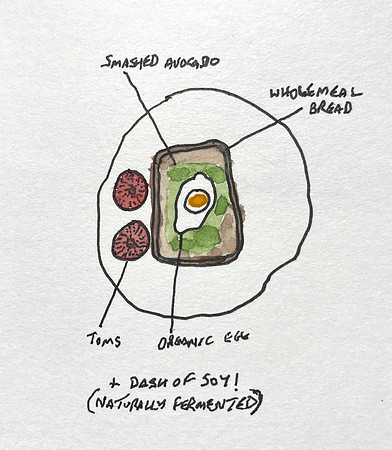 SMASHED AVOCADO
WHOLEMEAL
BREAD
TOMS
ORGANIC EGG
+ DASH OF SOY!
(NATURALLY FERMENTED)